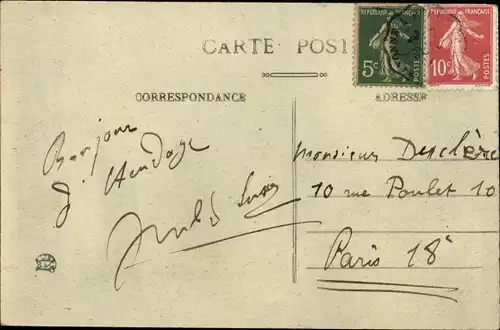 CARTE POST
CORRESPONDANCE
ADRESSE
REPUBLIQUE FRANÇAISE
5c
POSTES
REPUBLIQUE FRANÇAISE
10c
POSTES
Bonjour
d'Hendaye
Monsieur
10 rue Poulet 10
Paris 18e